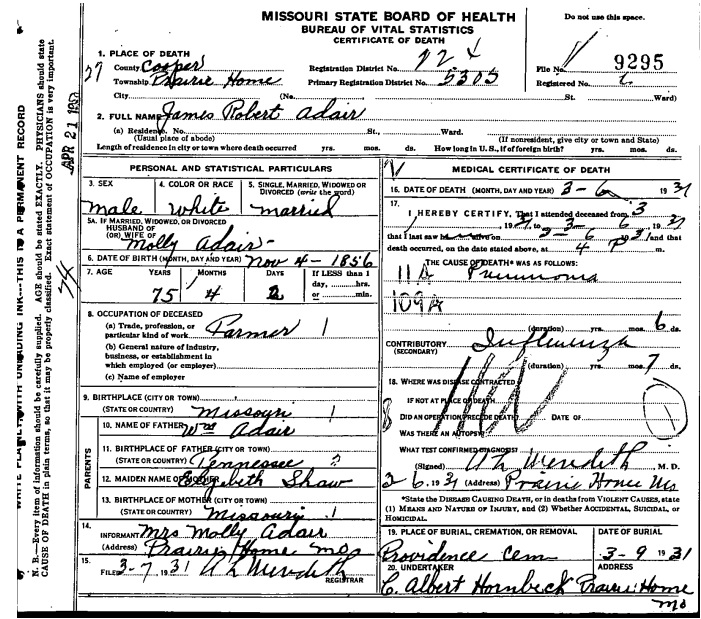 MISSOURI STATE BOARD OF HEALTH
BUREAU OF VITAL STATISTICS
CERTIFICATE OF DEATH
Do not use this space.
1. PLACE OF DEATH
County Cooper Registration District No. 224 File No. 9295
Township Prairie Home Primary Registration District No. 5305 Registered No.
City (No. St. Ward)
2. FULL NAME James Robert Adair
(a) Residence. No. St., Ward.
(Usual place of abode) (If nonresident, give city or town and State)
Length of residence in city or town where death occurred yrs. mos. ds. How long in U.S., if of foreign birth? yrs. mos. ds.
PERSONAL AND STATISTICAL PARTICULARS
3. SEX 4. COLOR OR RACE 5. SINGLE, MARRIED, WIDOWED OR DIVORCED (write the word)
male white married
5A. IF MARRIED, WIDOWED, OR DIVORCED
HUSBAND OF
(OR) WIFE OF Molly Adair
6. DATE OF BIRTH (MONTH, DAY AND YEAR) Nov 4 - 1856
7. AGE YEARS MONTHS DAYS If LESS than 1
day, hrs.
or min.
75 4 2
8. OCCUPATION OF DECEASED
(a) Trade, profession, or
particular kind of work Farmer 1
(b) General nature of industry,
business, or establishment in
which employed (or employer)
(c) Name of employer
9. BIRTHPLACE (CITY OR TOWN)
(STATE OR COUNTRY) Missouri 1
PARENTS
10. NAME OF FATHER Wm Adair
11. BIRTHPLACE OF FATHER (CITY OR TOWN)
(STATE OR COUNTRY) Tennessee
12. MAIDEN NAME OF MOTHER Elizabeth Shaw
13. BIRTHPLACE OF MOTHER (CITY OR TOWN)
(STATE OR COUNTRY) Missouri 1
14.
INFORMANT Mrs Molly Adair
(Address) Prairie Home Mo
15.
FILED 3-7, 1931 A L Meredith
REGISTRAR
MEDICAL CERTIFICATE OF DEATH
16. DATE OF DEATH (MONTH, DAY AND YEAR) 3-6 1931
17.
I HEREBY CERTIFY, That I attended deceased from 3
, 1931, to 3-6, 1931
that I last saw h alive on 3-6, 1931, and that
death occurred, on the date stated above, at 4 P m.
THE CAUSE OF DEATH* WAS AS FOLLOWS:
11A Pneumonia
109A
(duration) yrs. mos. 6 ds.
CONTRIBUTORY Influenza
(SECONDARY)
(duration) yrs. mos. 7 ds.
18. WHERE WAS DISEASE CONTRACTED
IF NOT AT PLACE OF DEATH
DID AN OPERATION PRECEDE DEATH? DATE OF
WAS THERE AN AUTOPSY?
WHAT TEST CONFIRMED DIAGNOSIS?
(Signed) A L Meredith M. D.
3-6, 1931 (Address) Prairie Home Mo
*State the DISEASE CAUSING DEATH, or in deaths from VIOLENT CAUSES, state
(1) MEANS AND NATURE OF INJURY, and (2) Whether ACCIDENTAL, SUICIDAL, or
HOMICIDAL.
19. PLACE OF BURIAL, CREMATION, OR REMOVAL DATE OF BURIAL
Providence Cem 3-9 1931
20. UNDERTAKER ADDRESS
C. Albert Hornbeck Prairie Home
Mo
27
APR 21 1931
74
WRITE PLAINLY, WITH UNFADING INK---THIS IS A PERMANENT RECORD
N. B.—Every item of information should be carefully supplied. AGE should be stated EXACTLY. PHYSICIANS should state
CAUSE OF DEATH in plain terms, so that it may be properly classified. Exact statement of OCCUPATION is very important.